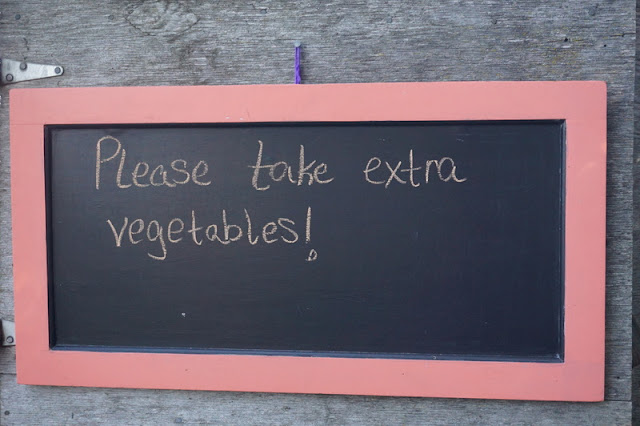 Please take extra
vegetables!